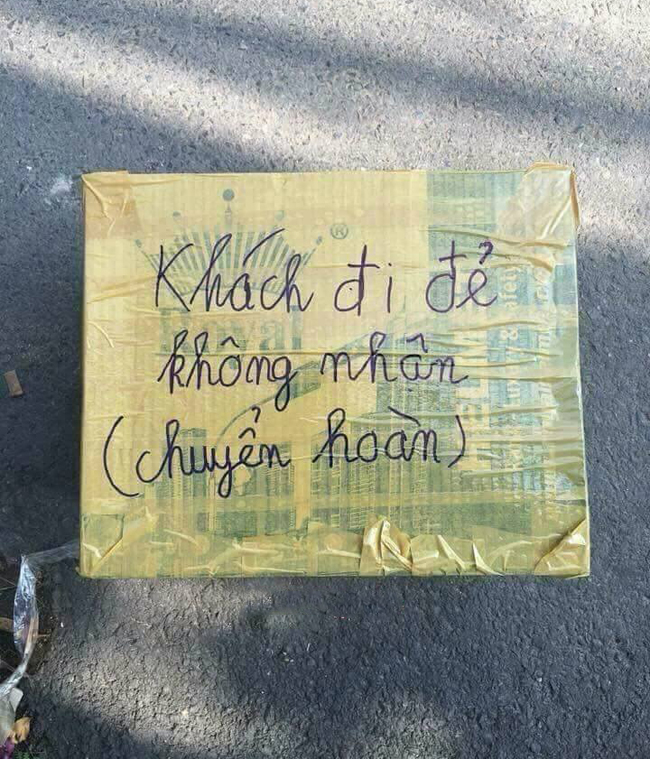 ®
Khách đi đẻ
không nhận
(chuyển hoàn)